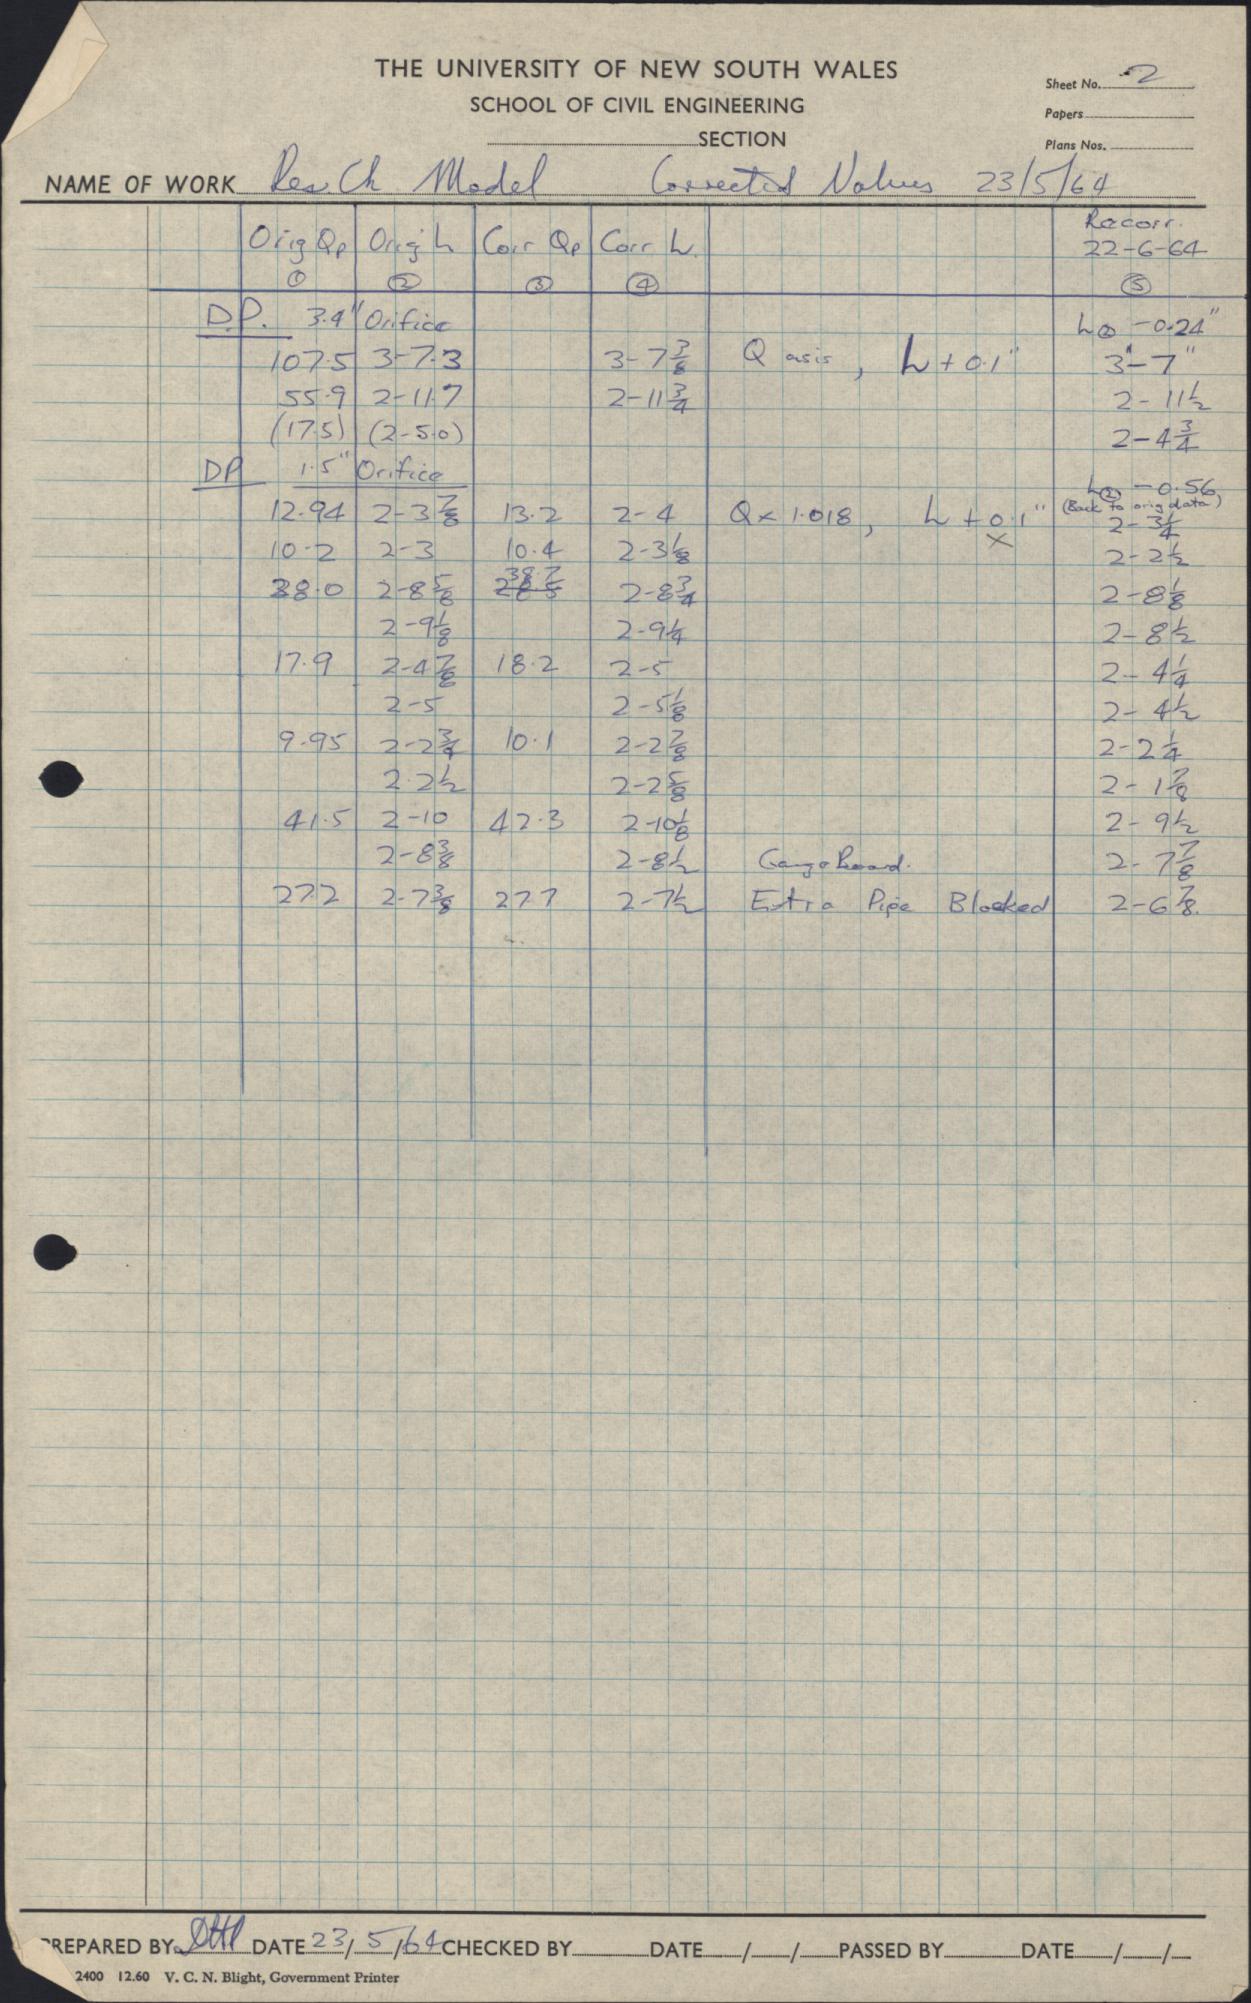 THE UNIVERSITY OF NEW SOUTH WALES
SCHOOL OF CIVIL ENGINEERING
SECTION
Sheet No. 2
Papers
Plans Nos.
NAME OF WORK Res. Ch Model Corrected Values 23/5/64
Orig Qp Orig h Corr Qp Corr h. Recorr. 22-6-64
① ② ③ ④ ⑤
D.P. 3.4" Orifice h② -0.24"
107.5 3-7.3 3-7 3/8 Q as is, h + 0.1" 3"-7"
55.9 2-11.7 2-11 3/4 2-11 1/2
(17.5) (2-5.0) 2-4 3/4
DP 1.5" Orifice h② -0.56
(Back to orig data)
12.94 2-3 7/8 13.2 2-4 Q x 1.018, h + 0.1" 2-3 1/4
x
10.2 2-3 10.4 2-3 1/8 2-2 1/2
38.0 2-8 5/8 38.7 2-8 3/4 2-8 1/8
2-9 1/8 2-9 1/4 2-8 1/2
17.9 2-4 7/8 18.2 2-5 2-4 1/4
2-5 2-5 1/8 2-4 1/2
9.95 2-2 3/4 10.1 2-2 7/8 2-2 1/4
2-2 1/2 2-2 5/8 2-1 7/8
41.5 2-10 42.3 2-10 1/8 2-9 1/2
2-8 3/8 2-8 1/2 Gauge Board. 2-7 7/8
27.2 2-7 3/8 27.7 2-7 1/2 Extra Pipe Blocked 2-6 7/8.
PREPARED BY DATE 23/5/64 CHECKED BY DATE / / PASSED BY DATE / /
2400 12.60 V. C. N. Blight, Government Printer